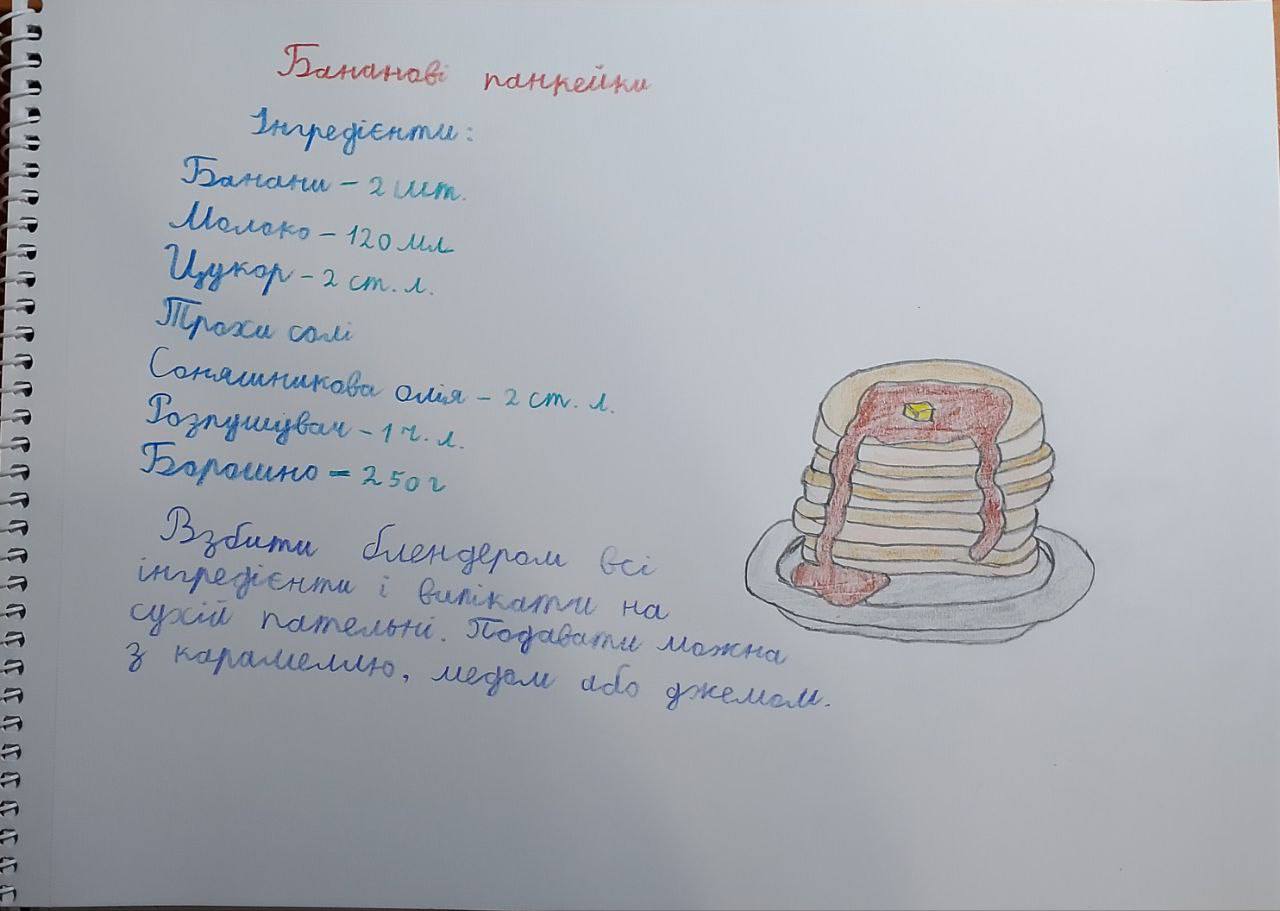 Бананові панкейки
Інгредієнти:
Банани - 2 шт.
Молоко - 120 мл
Цукор - 2 ст. л.
Трохи солі
Соняшникова олія - 2 ст. л.
Розпушувач - 1 ч. л.
Борошно - 250 г
Взбити блендером всі
інгредієнти і випікати на
сухій пательні. Подавати можна
з карамеллю, медом або джемом.